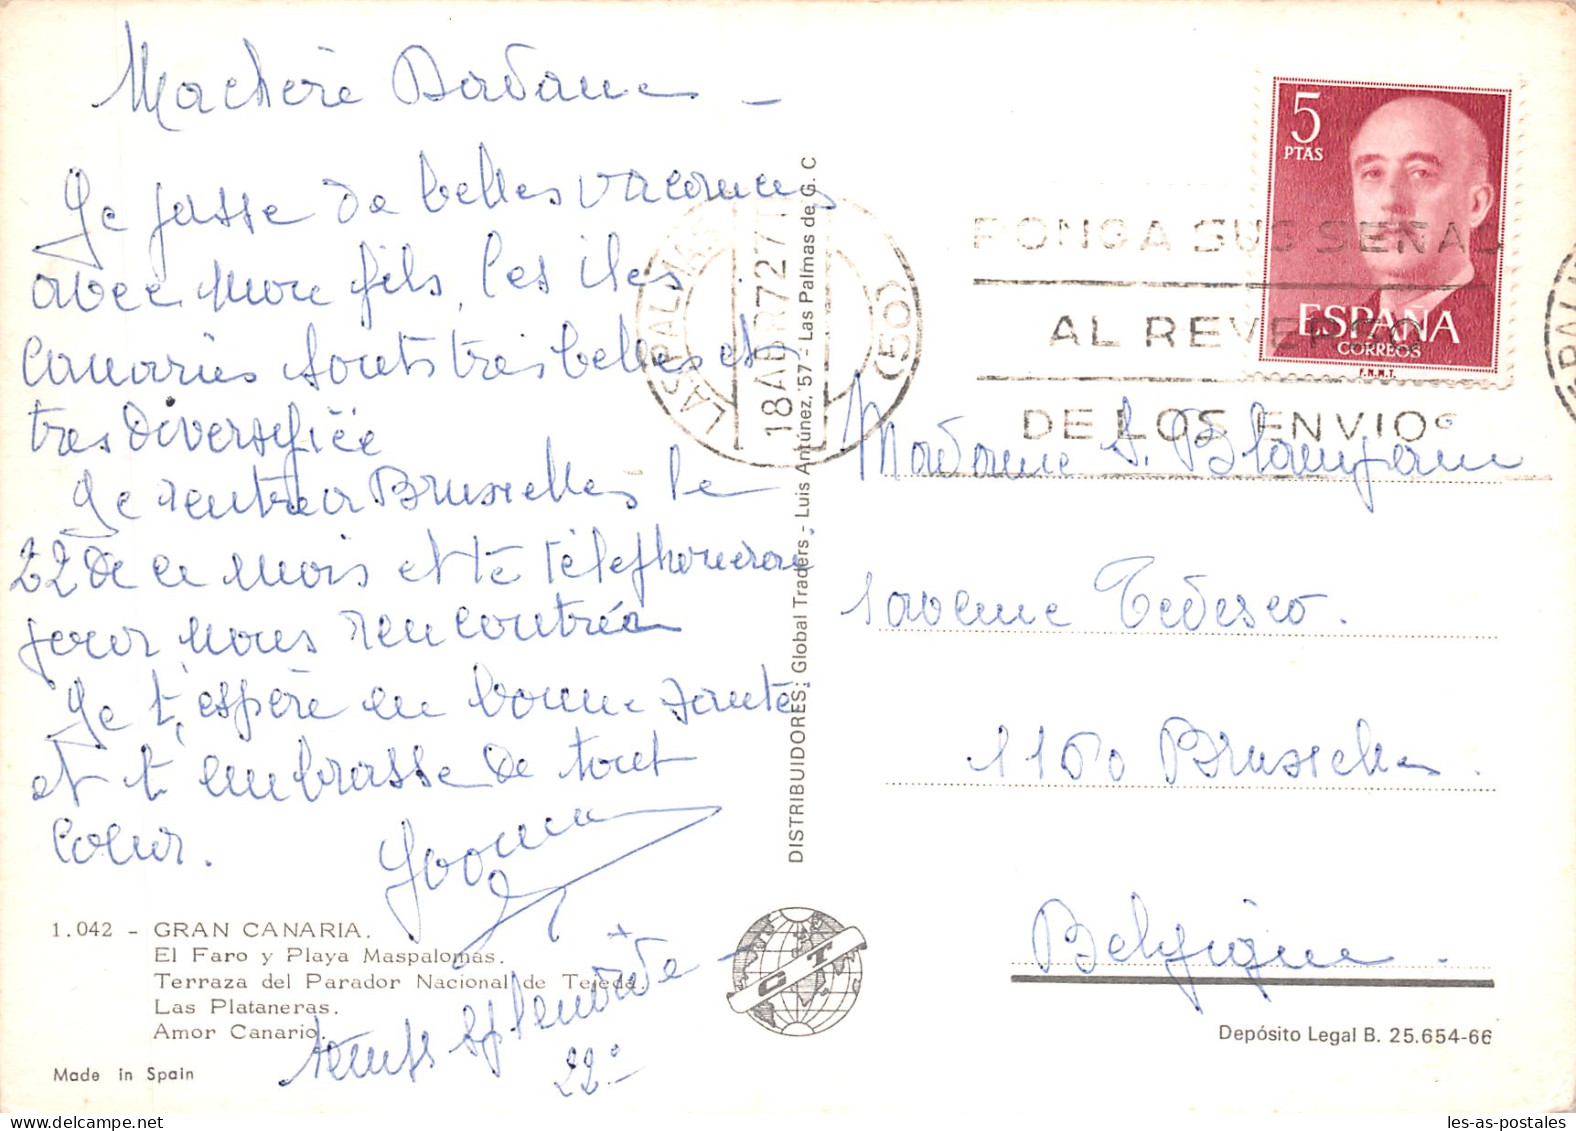 Ma chère
Je passe de belles vacances
avec mon fils, les iles
Canaries sont très belles et
tres diversifiée
Je rentre a Bruxelles le
22 de ce mois et te téléphonerai
pour nous rencontrer
Je t'espère en bonne santé
et t'embrasse de tout
Coeur.
Yvonne
temps splendide
22°
1.042 - GRAN CANARIA.
El Faro y Playa Maspalomas.
Terraza del Parador Nacional de Tejeda.
Las Plataneras.
Amor Canario.
Made in Spain
DISTRIBUIDORES: Global Traders - Luis Antúnez, 57 - Las Palmas de G. C
GT
LAS PALMAS
18ABR72
(50)
PONGA SUS SEÑAS
AL REVERSO
DE LOS ENVIOS
5
PTAS
ESPAÑA
CORREOS
F.N.M.T.
Madame S.
Tedesco.
Bruxelles.
Belgique.
Depósito Legal B. 25.654-66
les-as-postales